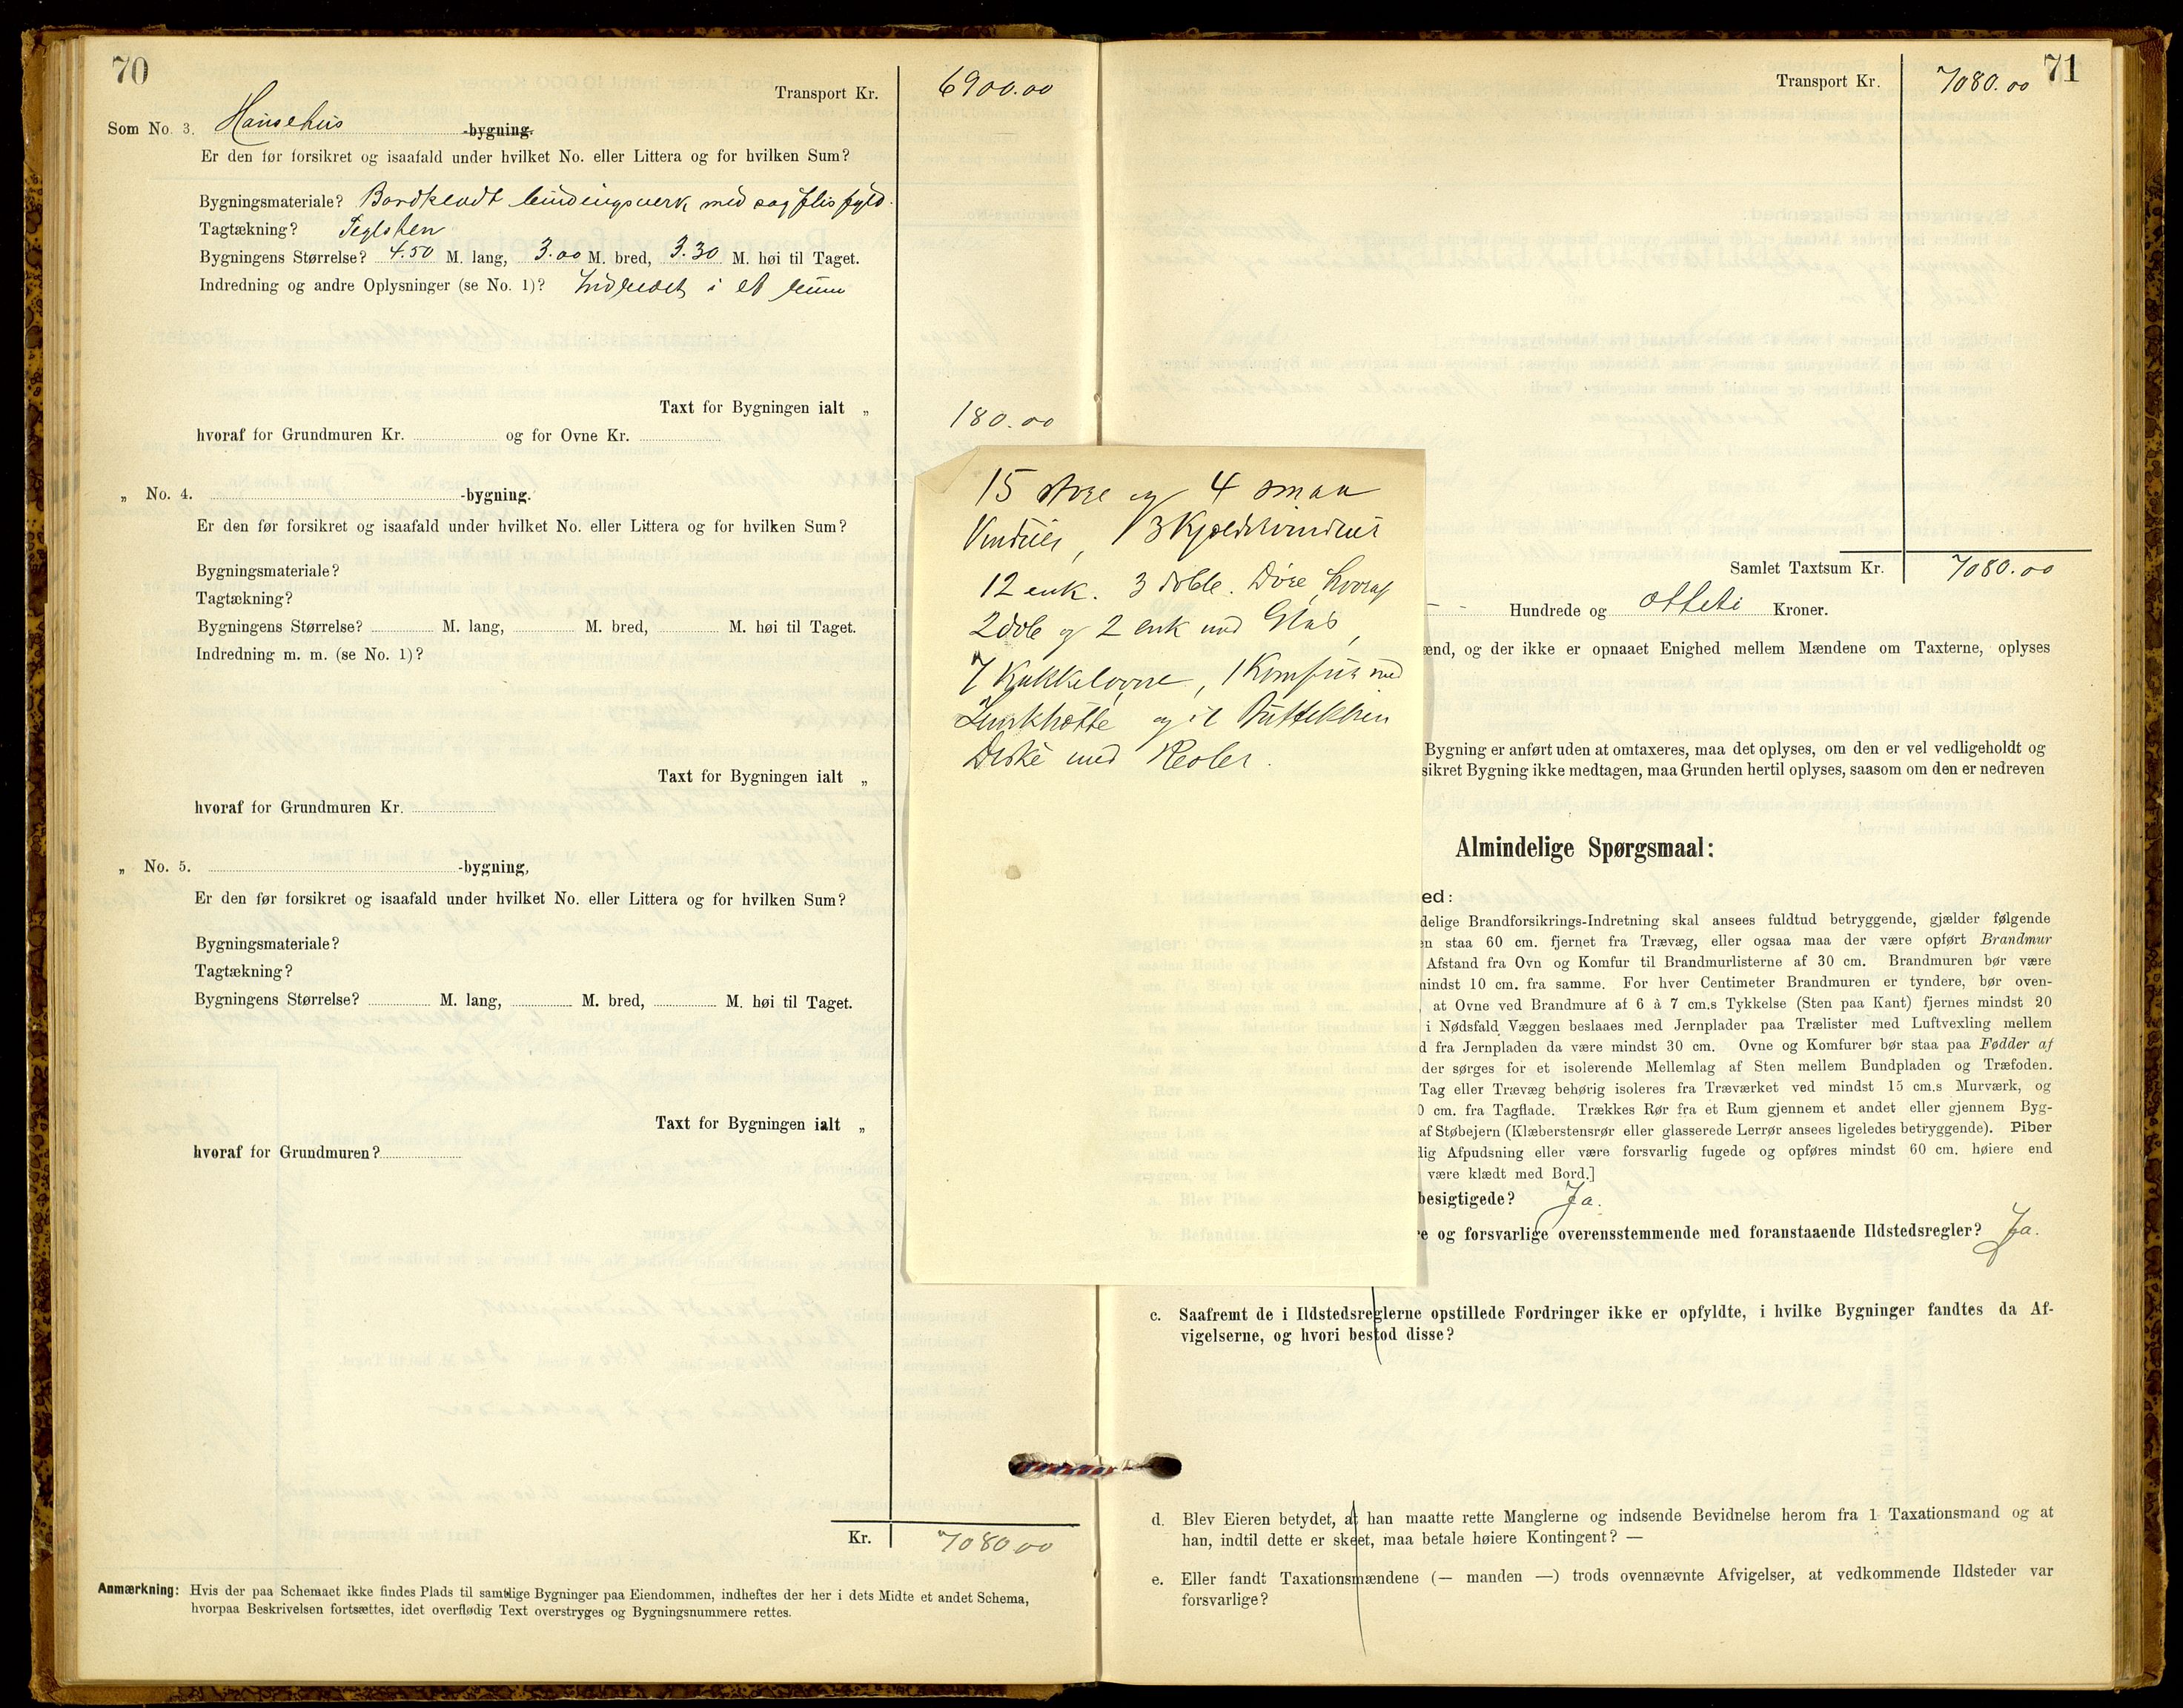 70
Transport Kr. 6900.00
Som No. 3. Hønsehus -bygning.
Er den før forsikret og isaafald under hvilket No. eller Littera og for hvilken Sum?
Bygningsmateriale? Bordklædt bindingsverk med sagflisfyld.
Tagtækning? Teglsten
Bygningens Størrelse? 4.50 M. lang, 3.00 M. bred, 3.30 M. høi til Taget.
Indredning og andre Oplysninger (se No. 1)? Indredet i et rum
Taxt for Bygningen ialt „ 180.00
hvoraf for Grundmuren Kr. og for Ovne Kr.
„ No. 4. -bygning.
Er den før forsikret og isaafald under hvilket No. eller Littera og for hvilken Sum?
Bygningsmateriale?
Tagtækning?
Bygningens Størrelse? M. lang, M. bred, M. høi til Taget.
Indredning m. m. (se No. 1)?
Taxt for Bygningen ialt „
hvoraf for Grundmuren Kr.
„ No. 5. -bygning,
Er den før forsikret og isaafald under hvilket No. eller Littera og for hvilken Sum?
Bygningsmateriale?
Tagtækning?
Bygningens Størrelse? M. lang, M. bred, M. høi til Taget.
Taxt for Bygningen ialt „
hvoraf for Grundmuren?
Kr. 7080.00
Anmærkning: Hvis der paa Schemaet ikke findes Plads til samtlige Bygninger paa Eiendommen, indheftes der her i dets Midte et andet Schema,
hvorpaa Beskrivelsen fortsættes, idet overflødig Text overstryges og Bygningsnummere rettes.
15 store og 4 smaa
Vinduer, 3 Kjeldervinduer
12 enk. 3 doble. Døre, hvoraf
2 dob og 2 enk med Glas,
7 Kakkelovne, 1 Komfur med
og et
Diske med Reoler.
71
Transport Kr. 7080.00
Samlet Taxtsum Kr. 7080.00
- - Hundrede og otteti Kroner.
ænd, og der ikke er opnaaet Enighed mellem Mændene om Taxterne, oplyses
Bygning er anført uden at omtaxeres, maa det oplyses, om den er vel vedligeholdt og
sikret Bygning ikke medtagen, maa Grunden hertil oplyses, saasom om den er nedreven
Almindelige Spørgsmaal:
ed:
delige Brandforsikrings-Indretning skal ansees fuldtud betryggende, gjælder følgende
en staa 60 cm. fjernet fra Trævæg, eller ogsaa maa der være opført Brandmur
Afstand fra Ovn og Komfur til Brandmurlisterne af 30 cm. Brandmuren bør være
mindst 10 cm. fra samme. For hver Centimeter Brandmuren er tyndere, bør oven-
, at Ovne ved Brandmure af 6 à 7 cm.s Tykkelse (Sten paa Kant) fjernes mindst 20
i Nødsfald Væggen beslaaes med Jernplader paa Trælister med Luftvexling mellem
d fra Jernpladen da være mindst 30 cm. Ovne og Komfurer bør staa paa Fødder af
der sørges for et isolerende Mellemlag af Sten mellem Bundpladen og Træfoden.
Tag eller Trævæg behørig isoleres fra Træværket ved mindst 15 cm.s Murværk, og
0 cm. fra Tagflade. Trækkes Rør fra et Rum gjennem et andet eller gjennem Byg-
af Støbejern (Klæberstensrør eller glasserede Lerrør ansees ligeledes betryggende). Piber
lig Afpudsning eller være forsvarlig fugede og opføres mindst 60 cm. høiere end
være klædt med Bord.]
besigtigede? Ja.
e og forsvarlige overensstemmende med foranstaaende Ildstedsregler? Ja.
c. Saafremt de i Ildstedsreglerne opstillede Fordringer ikke er opfyldte, i hvilke Bygninger fandtes da Af-
vigelserne, og hvori bestod disse?
d. Blev Eieren betydet, at han maatte rette Manglerne og indsende Bevidnelse herom fra 1 Taxationsmand og at
han, indtil dette er skeet, maa betale høiere Kontingent? —
e. Eller fandt Taxationsmændene (— manden —) trods ovennævnte Afvigelser, at vedkommende Ildsteder var
forsvarlige?